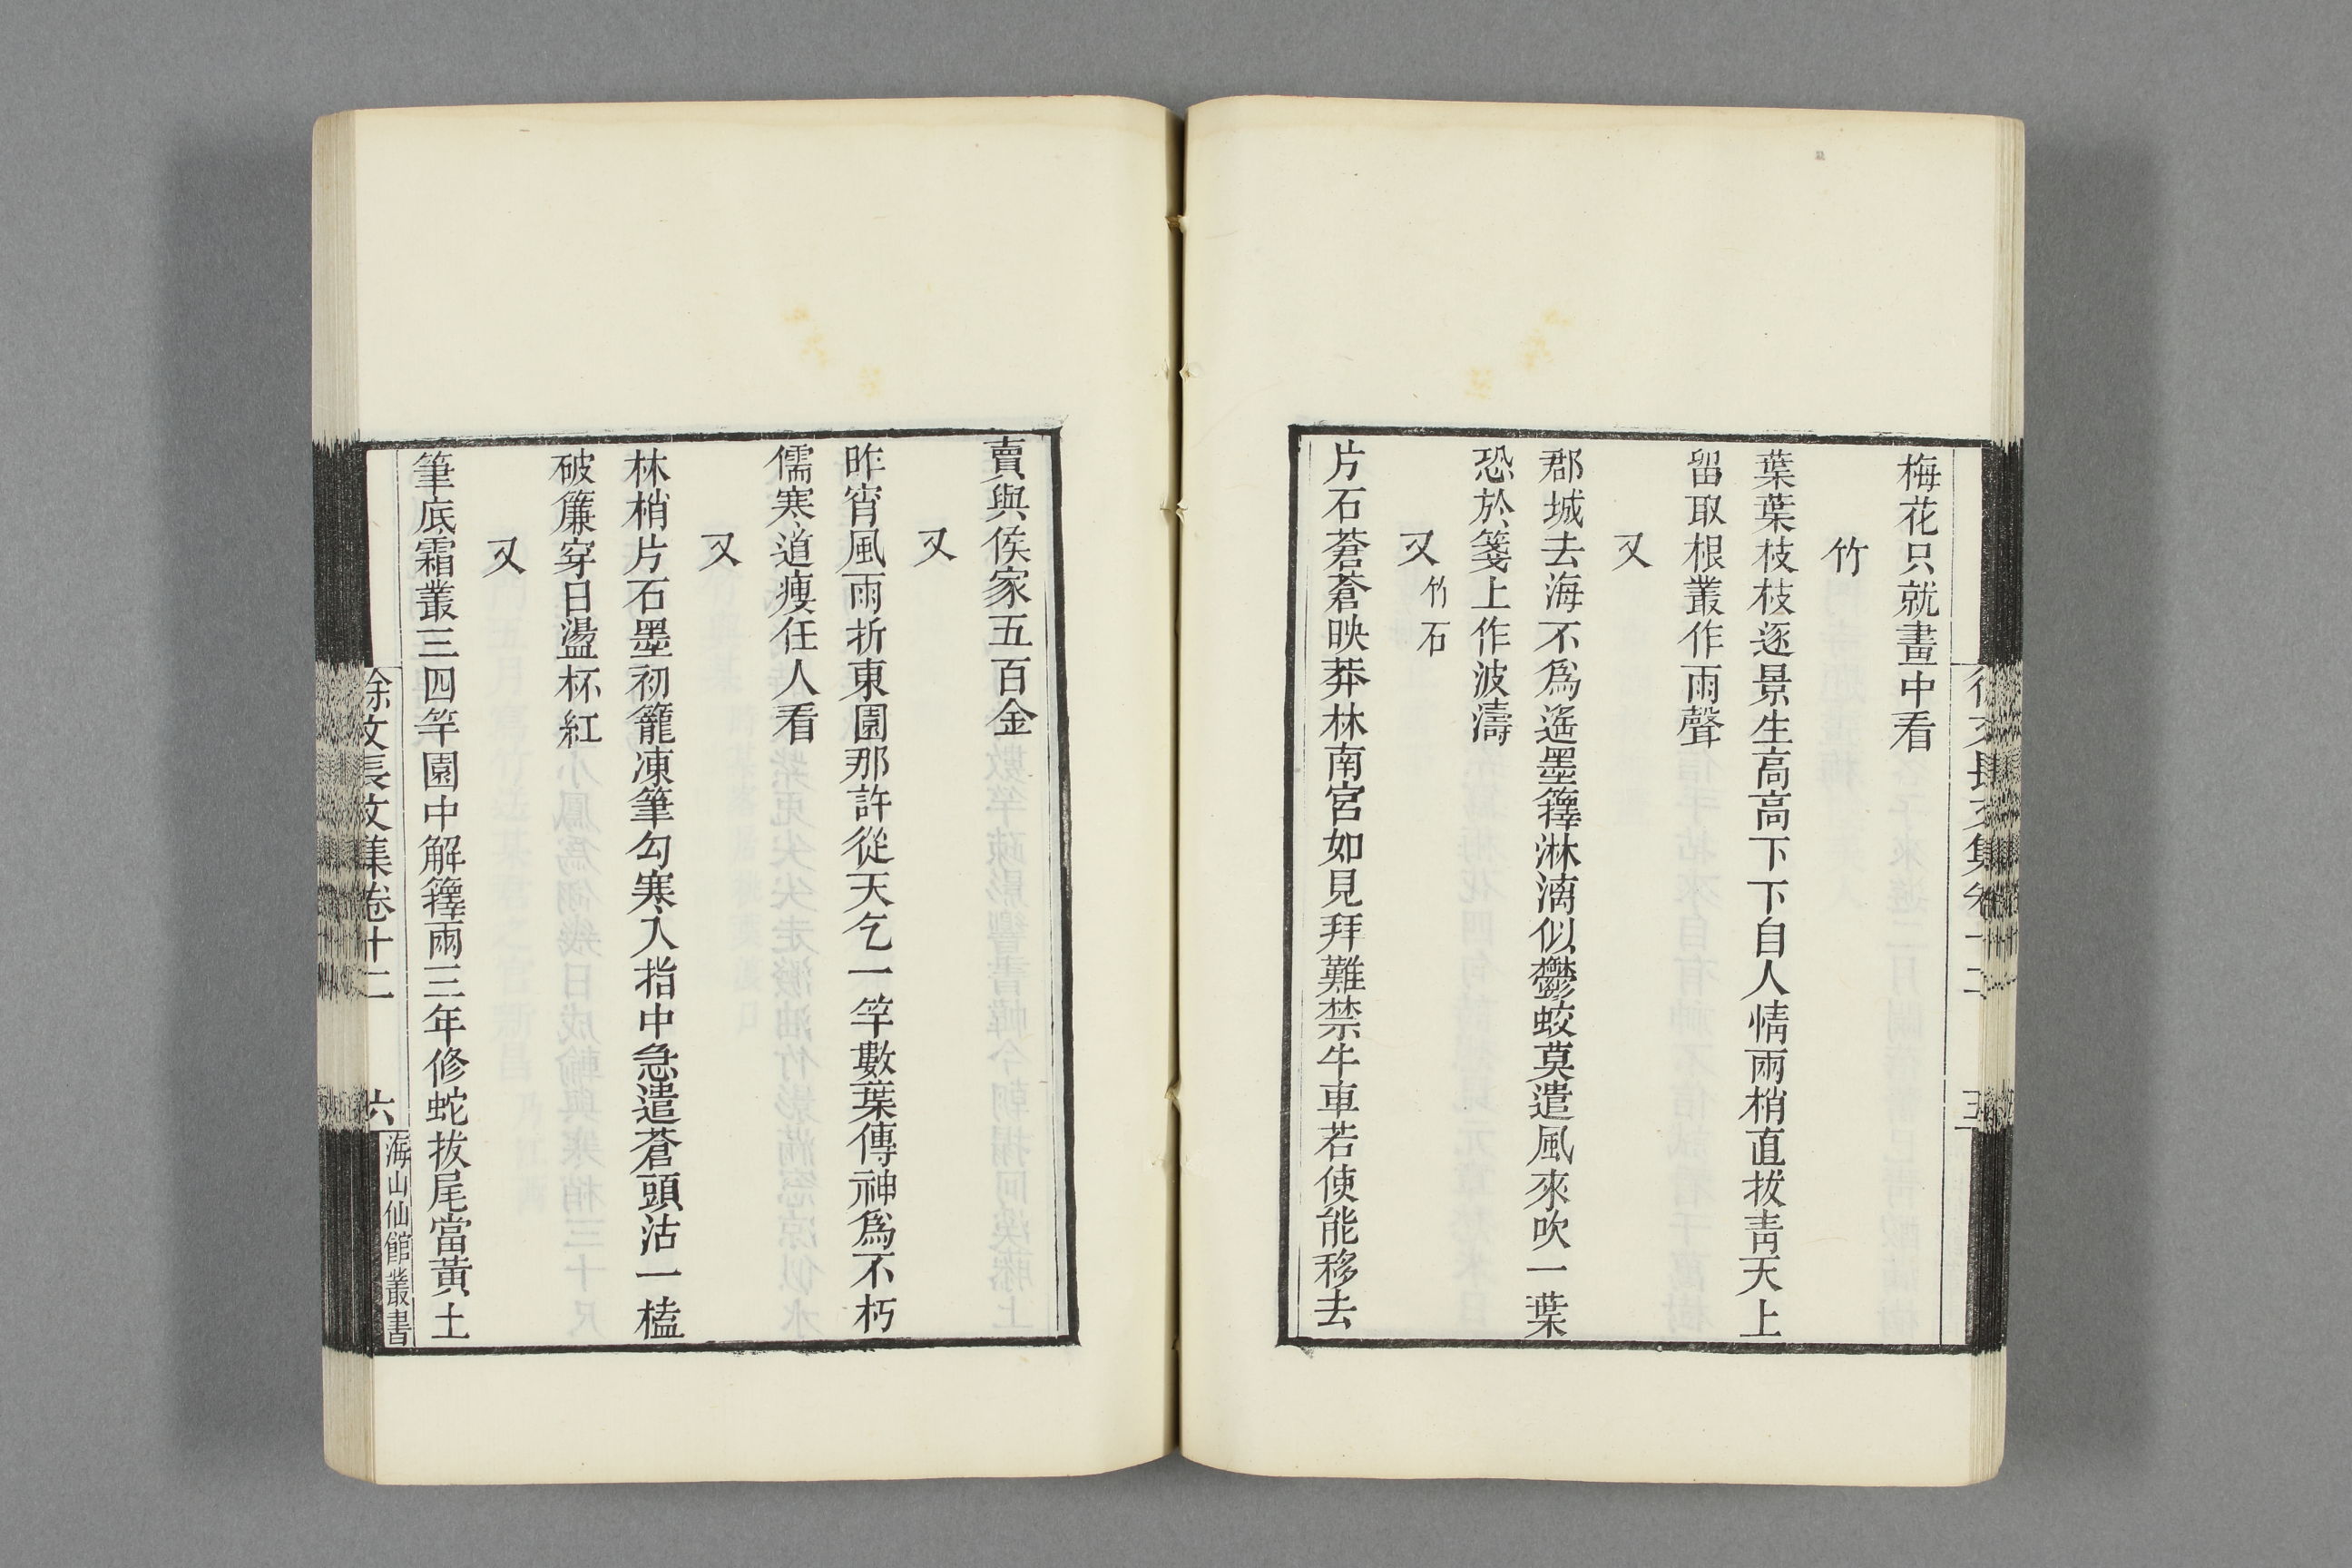 梅花只就畫中看
竹
葉葉枝枝逐景生高高下下自人情雨梢直拔青天上
留取根叢作雨聲
又
郡城去海不爲遙墨籜淋漓似鬱蛟莫遣風來吹一葉
恐於箋上作波濤
又 竹石
片石蒼蒼映莽林南宮如見拜難禁牛車若使能移去
賣與侯家五百金
又
昨宵風雨折東園那許從天乞一竿數葉傳神爲不朽
儒寒道瘦任人看
又
林梢片石墨初籠凍筆勾寒入指中急遣蒼頭沽一榼
破簾穿日盪杯紅
又
筆底霜叢三四竿園中解籜雨三年修蛇拔尾當黃土
徐文長文集卷十二
六
海山仙館叢書